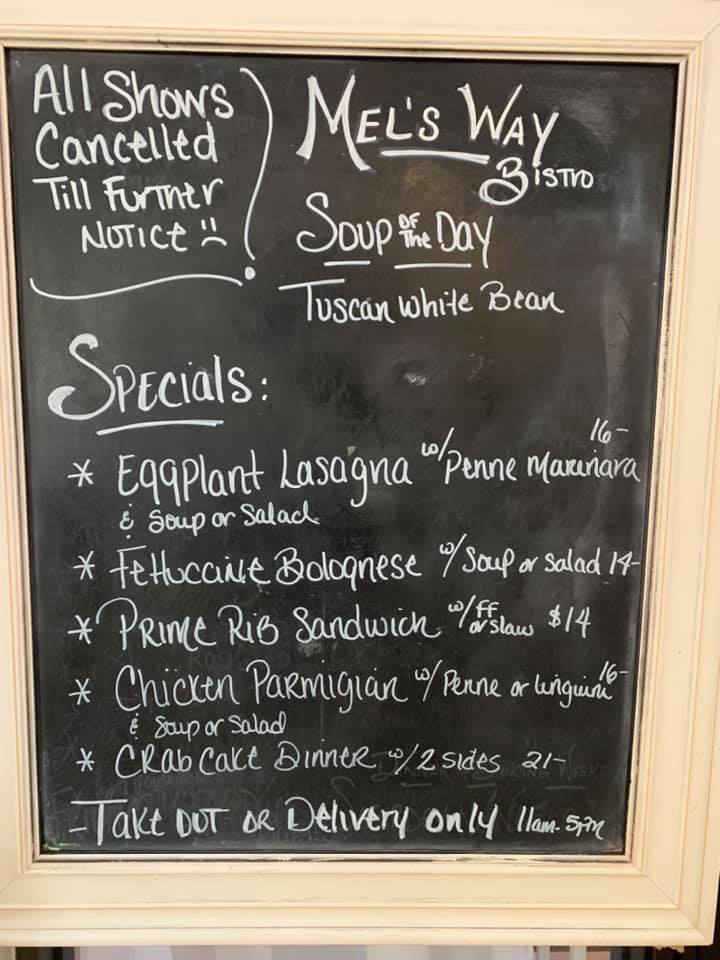 All Shows
Cancelled
Till Further
Notice
Mel's Way
Bistro
Soup of the Day
Tuscan White Bean
Specials:
* Eggplant Lasagna w/ Penne Marinara 16-
& Soup or Salad
* Fettuccine Bolognese w/ Soup or Salad 14-
* Prime Rib Sandwich w/ ff or slaw $14
* Chicken Parmigian w/ Penne or linguini 16-
& Soup or Salad
* Crab Cake Dinner w/ 2 sides 21-
- Take Out or Delivery only 11am-5pm